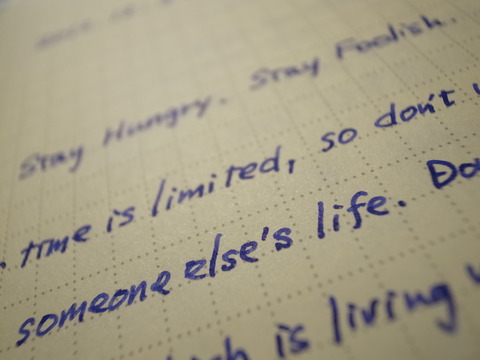 Stay Hungry. Stay Foolish.
time is limited, so don't
someone else's life.
is living